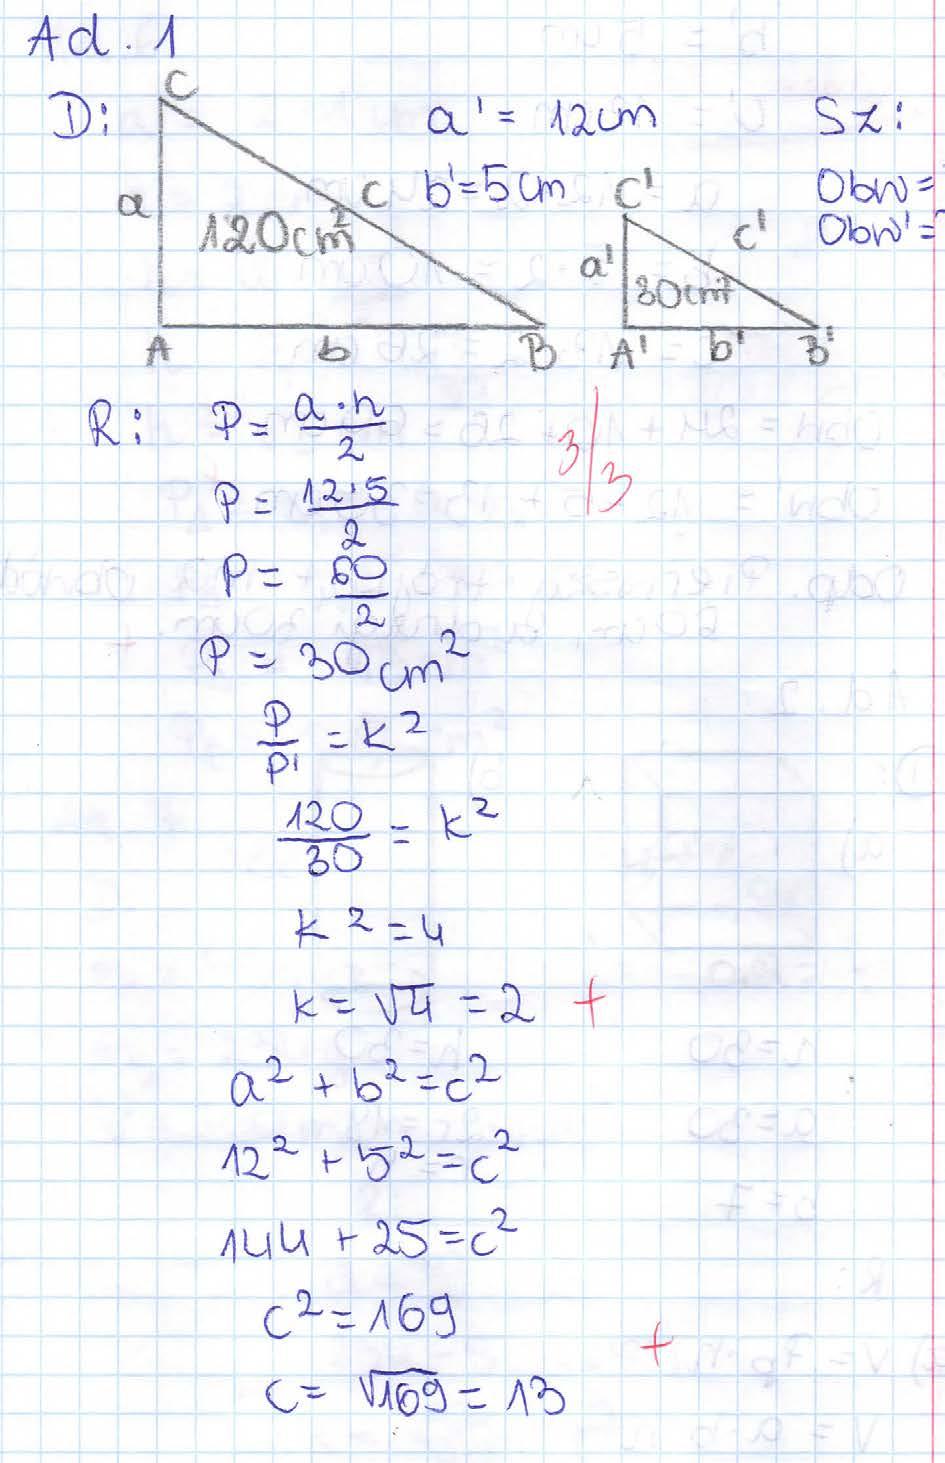 Ad. 1
D:
C
a
120cm²
c
A
b
B
a' = 12cm
b' = 5cm
C'
a'
30cm²
c'
A'
b'
B'
Sz:
Obw=?
Obw'=?
R: P = a·h/2
3/3
P = 12·5/2
P = 60/2
P = 30cm²
P/P' = k²
120/30 = k²
k² = 4
k = √4 = 2 +
a² + b² = c²
12² + 5² = c²
144 + 25 = c²
c² = 169
+
c = √169 = 13